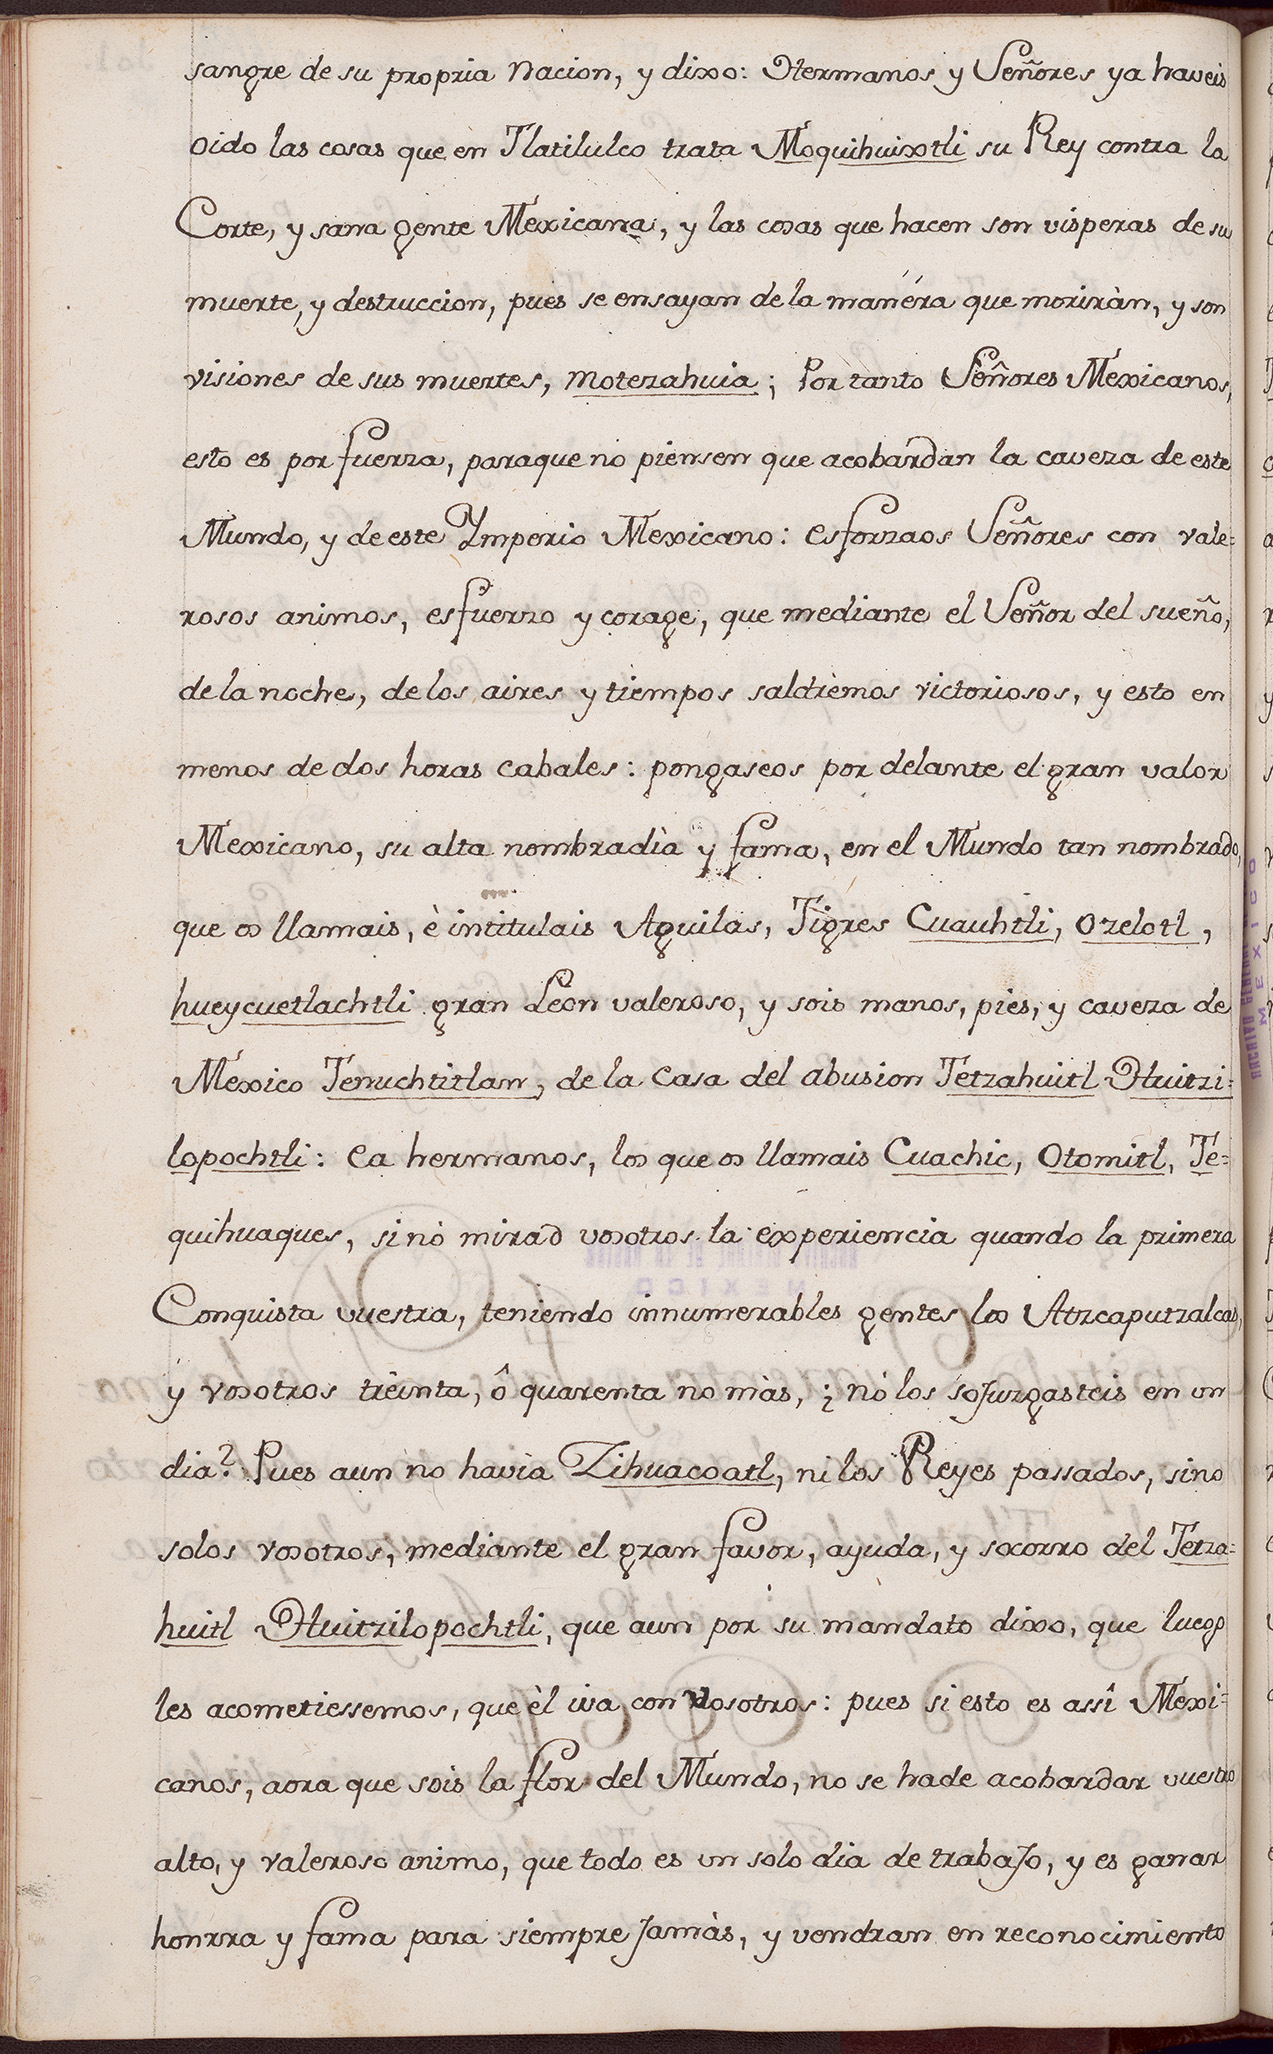 sangre de su propria Nacion, y dixo: Hermanos y Señores ya haveis
oido las cosas que en Tlatilulco trata Moquihuixtli su Rey contra la
Corte, y sana gente Mexicana, y las cosas que hacen son visperas de su
muerte, y destruccion, pues se ensayan de la manéra que moriràn, y son
visiones de sus muertes, motezahuia; Por tanto Señores Mexicanos,
esto es por fuerza, paraque no piensen que acobardan la caveza de este
Mundo, y de este Ymperio Mexicano: esforzaos Señores con vale=
rosos animos, esfuerzo y corage, que mediante el Señor del sueño,
de la noche, de los aires y tiempos saldrèmos victoriosos, y esto en
menos de dos horas cabales: pongaseos por delante el gran valor
Mexicano, su alta nombradìa y fama, en el Mundo tan nombrado,
que os llamais, è intitulais Aguilas, Tigres Cuauhtli, Ozelotl,
hueycuetlachtli gran Leon valeroso, y sois manos, pies, y caveza de
Mèxico Tenuchtitlan, de la Casa del abusion Tetzahuitl Huitzi=
lopochtli: Ea hermanos, los que os llamais Cuachic, Otomitl, Te=
quihuaques, sinò mirad vosotros la experiencia quando la primera
Conquista vuestra, teniendo innumerables gentes los Atzcaputzalcas,
y vosotros trèinta, ô quarenta no màs, ¿ nò los sojuzgasteis en un
dia? Pues aun no havìa Zihuacoatl, ni los Reyes passados, sino
solos vosotros, mediante el gran favor, ayuda, y socorro del Tetza=
huitl Huitzilopochtli, que aun por su mandato dixo, que luego
les acometiessemos, que èl iva con Nosotros: pues si esto es assî Mèxi=
canos, aora que sois la flor del Mundo, no se hade acobardar vuestro
alto, y valeroso animo, que todo es un solo dia de trabajo, y es ganar
honrra y fama para siempre jamàs, y vendran en reconocimiento